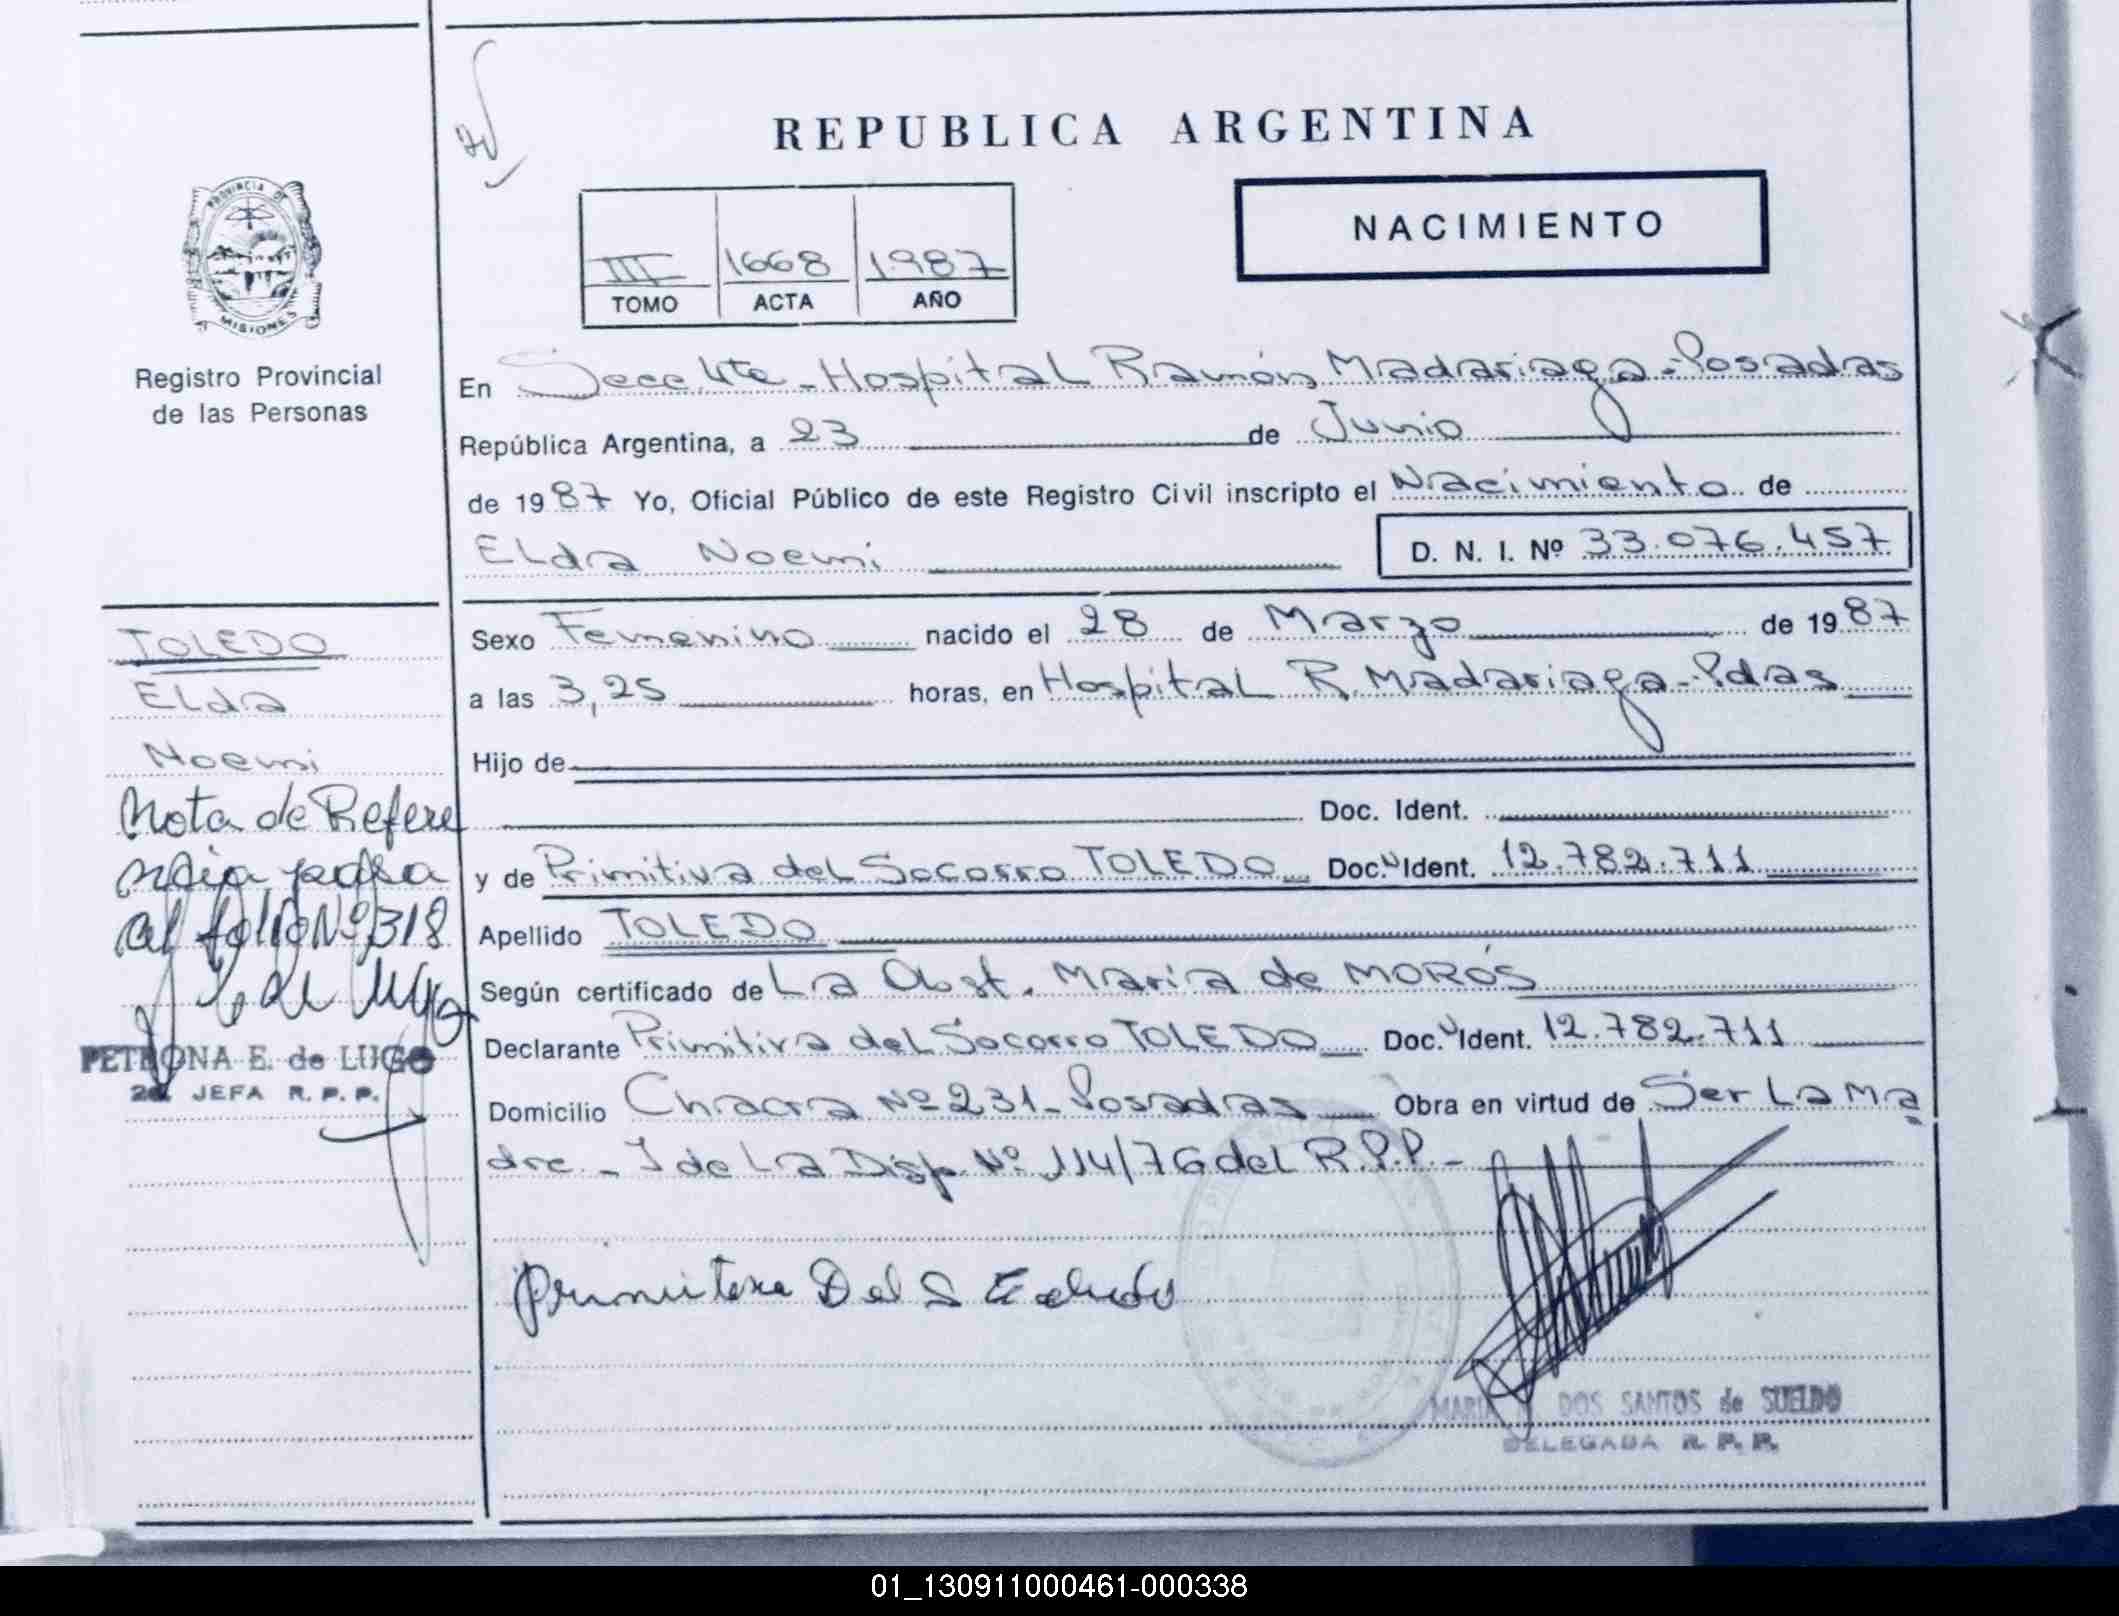 REPUBLICA ARGENTINA
NACIMIENTO
III 1668 1987
TOMO ACTA AÑO
PROVINCIA DE
MISIONES
Registro Provincial
de las Personas
En Secc 4ta - Hospital Ramón Madariaga - Posadas
República Argentina, a 23 de Junio
de 1987 Yo, Oficial Público de este Registro Civil inscripto el Nacimiento de
Elda Noemi D. N. I. Nº 33.076.457
Sexo Femenino nacido el 28 de Marzo de 1987
a las 3,25 horas, en Hospital R. Madariaga - Pdas
Hijo de
Doc. Ident.
y de Primitiva del Socorro TOLEDO Doc. Ident. 12.782.711
Apellido TOLEDO
Según certificado de La Obst. Maria de MOROS
Declarante Primitiva del Socorro TOLEDO Doc. Ident. 12.782.711
Domicilio Chacra Nº 231 - Posadas Obra en virtud de Ser La Ma
dre - I de La Disp. Nº 114/76 del R.P.P. -
Primitiva Del S
MARIA DOS SANTOS de SUELDO
DELEGADA R. P. P.
TOLEDO
Elda
Noemi
Nota de Refere
ncia pasa
al folio Nº 318
E. de Lugo
PETRONA E. de LUGO
2a. JEFA R. P. P.
01_130911000461-000338